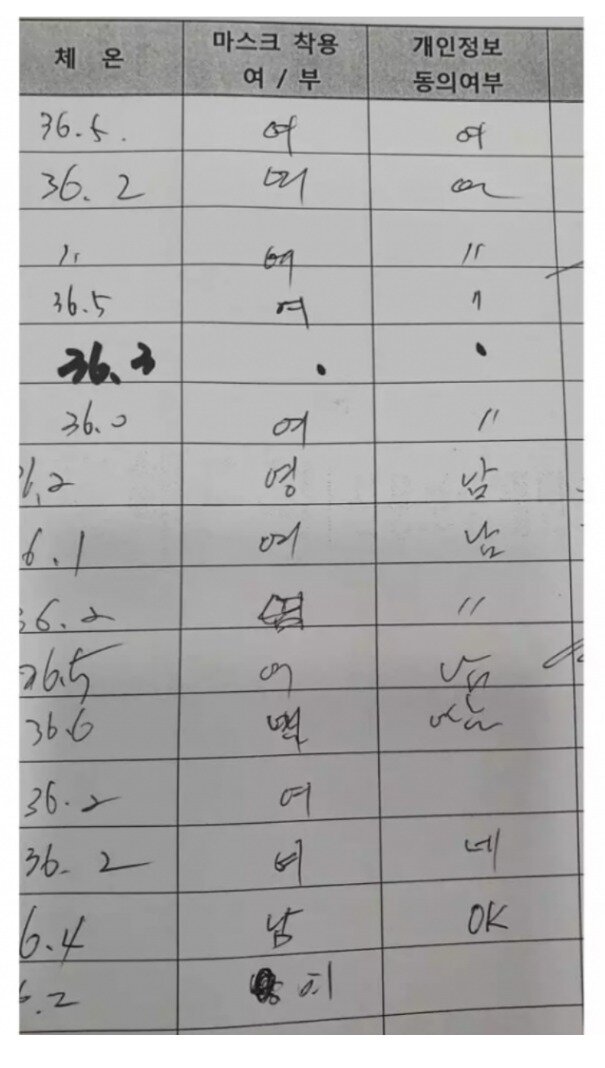 체 온 마스크 착용 여 / 부 개인정보 동의여부
36.5. 여 여
36.2 여
〃 여 〃
36.5 여 〃
36.3 . .
36.0 여 〃
6.2 영 남
6.1 여 남
36.2 〃
36.5 여 남
36.6
36.2 여
36. 2 여 네
6.4 남 OK
6.2